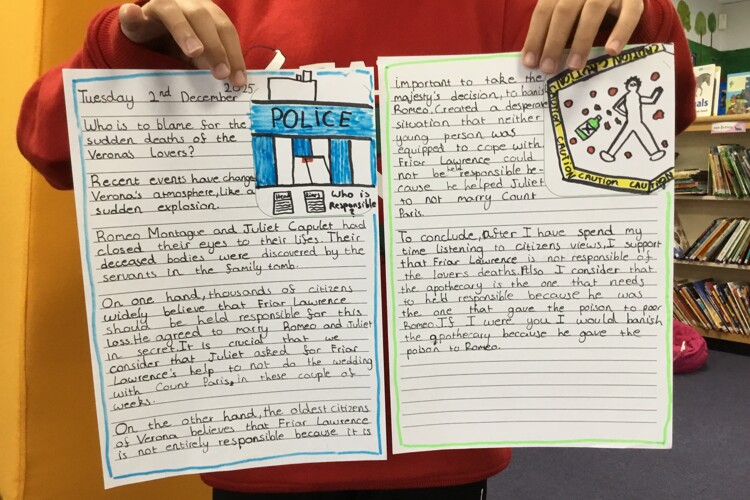 Tuesday 2nd December 2025
Who is to blame for the
sudden deaths of the
Verona's lovers?
Recent events have change
Verona's atmosphere, like a
sudden explosion.
Romeo Montague and Juliet Capulet had
closed their eyes to their lifes. Their
deceased bodies were discovered by the
servants in the family tomb.
On one hand, thousands of citizens
widely believe that Friar Lawrence
should be held responsible for this
loss. He agreed to marry Romeo and Juliet
in secret. It is crucial that we
consider that Juliet asked for Friar
Lawrence's help to not do the wedding
with Count Paris, in these couple of
weeks.
On the other hand, the oldest citizens
of Verona believes that Friar Lawrence
is not entirely responsible because it is
POLICE
Who is
Responsible
?
important to take the
majesty's decision, to banish
Romeo. Created a desperate
situation that neither
young person was
equipped to cope with.
Friar Lawrence could
not be held responsible be-
cause he helped Juliet
to not marry Count
Paris.
To conclude, after I have spend my
time listening to citizens views, I support
that Friar Lawrence is not responsible of
the lovers deaths. Also I consider that
the apothecary is the one that needs
to held responsible because he was
the one that gave the poison to poor
Romeo. If I were you I would banish
the apothecary because he gave the
poison to Romeo.
CAUTION CAUTION
CAUTION
CAUTION CAUTION